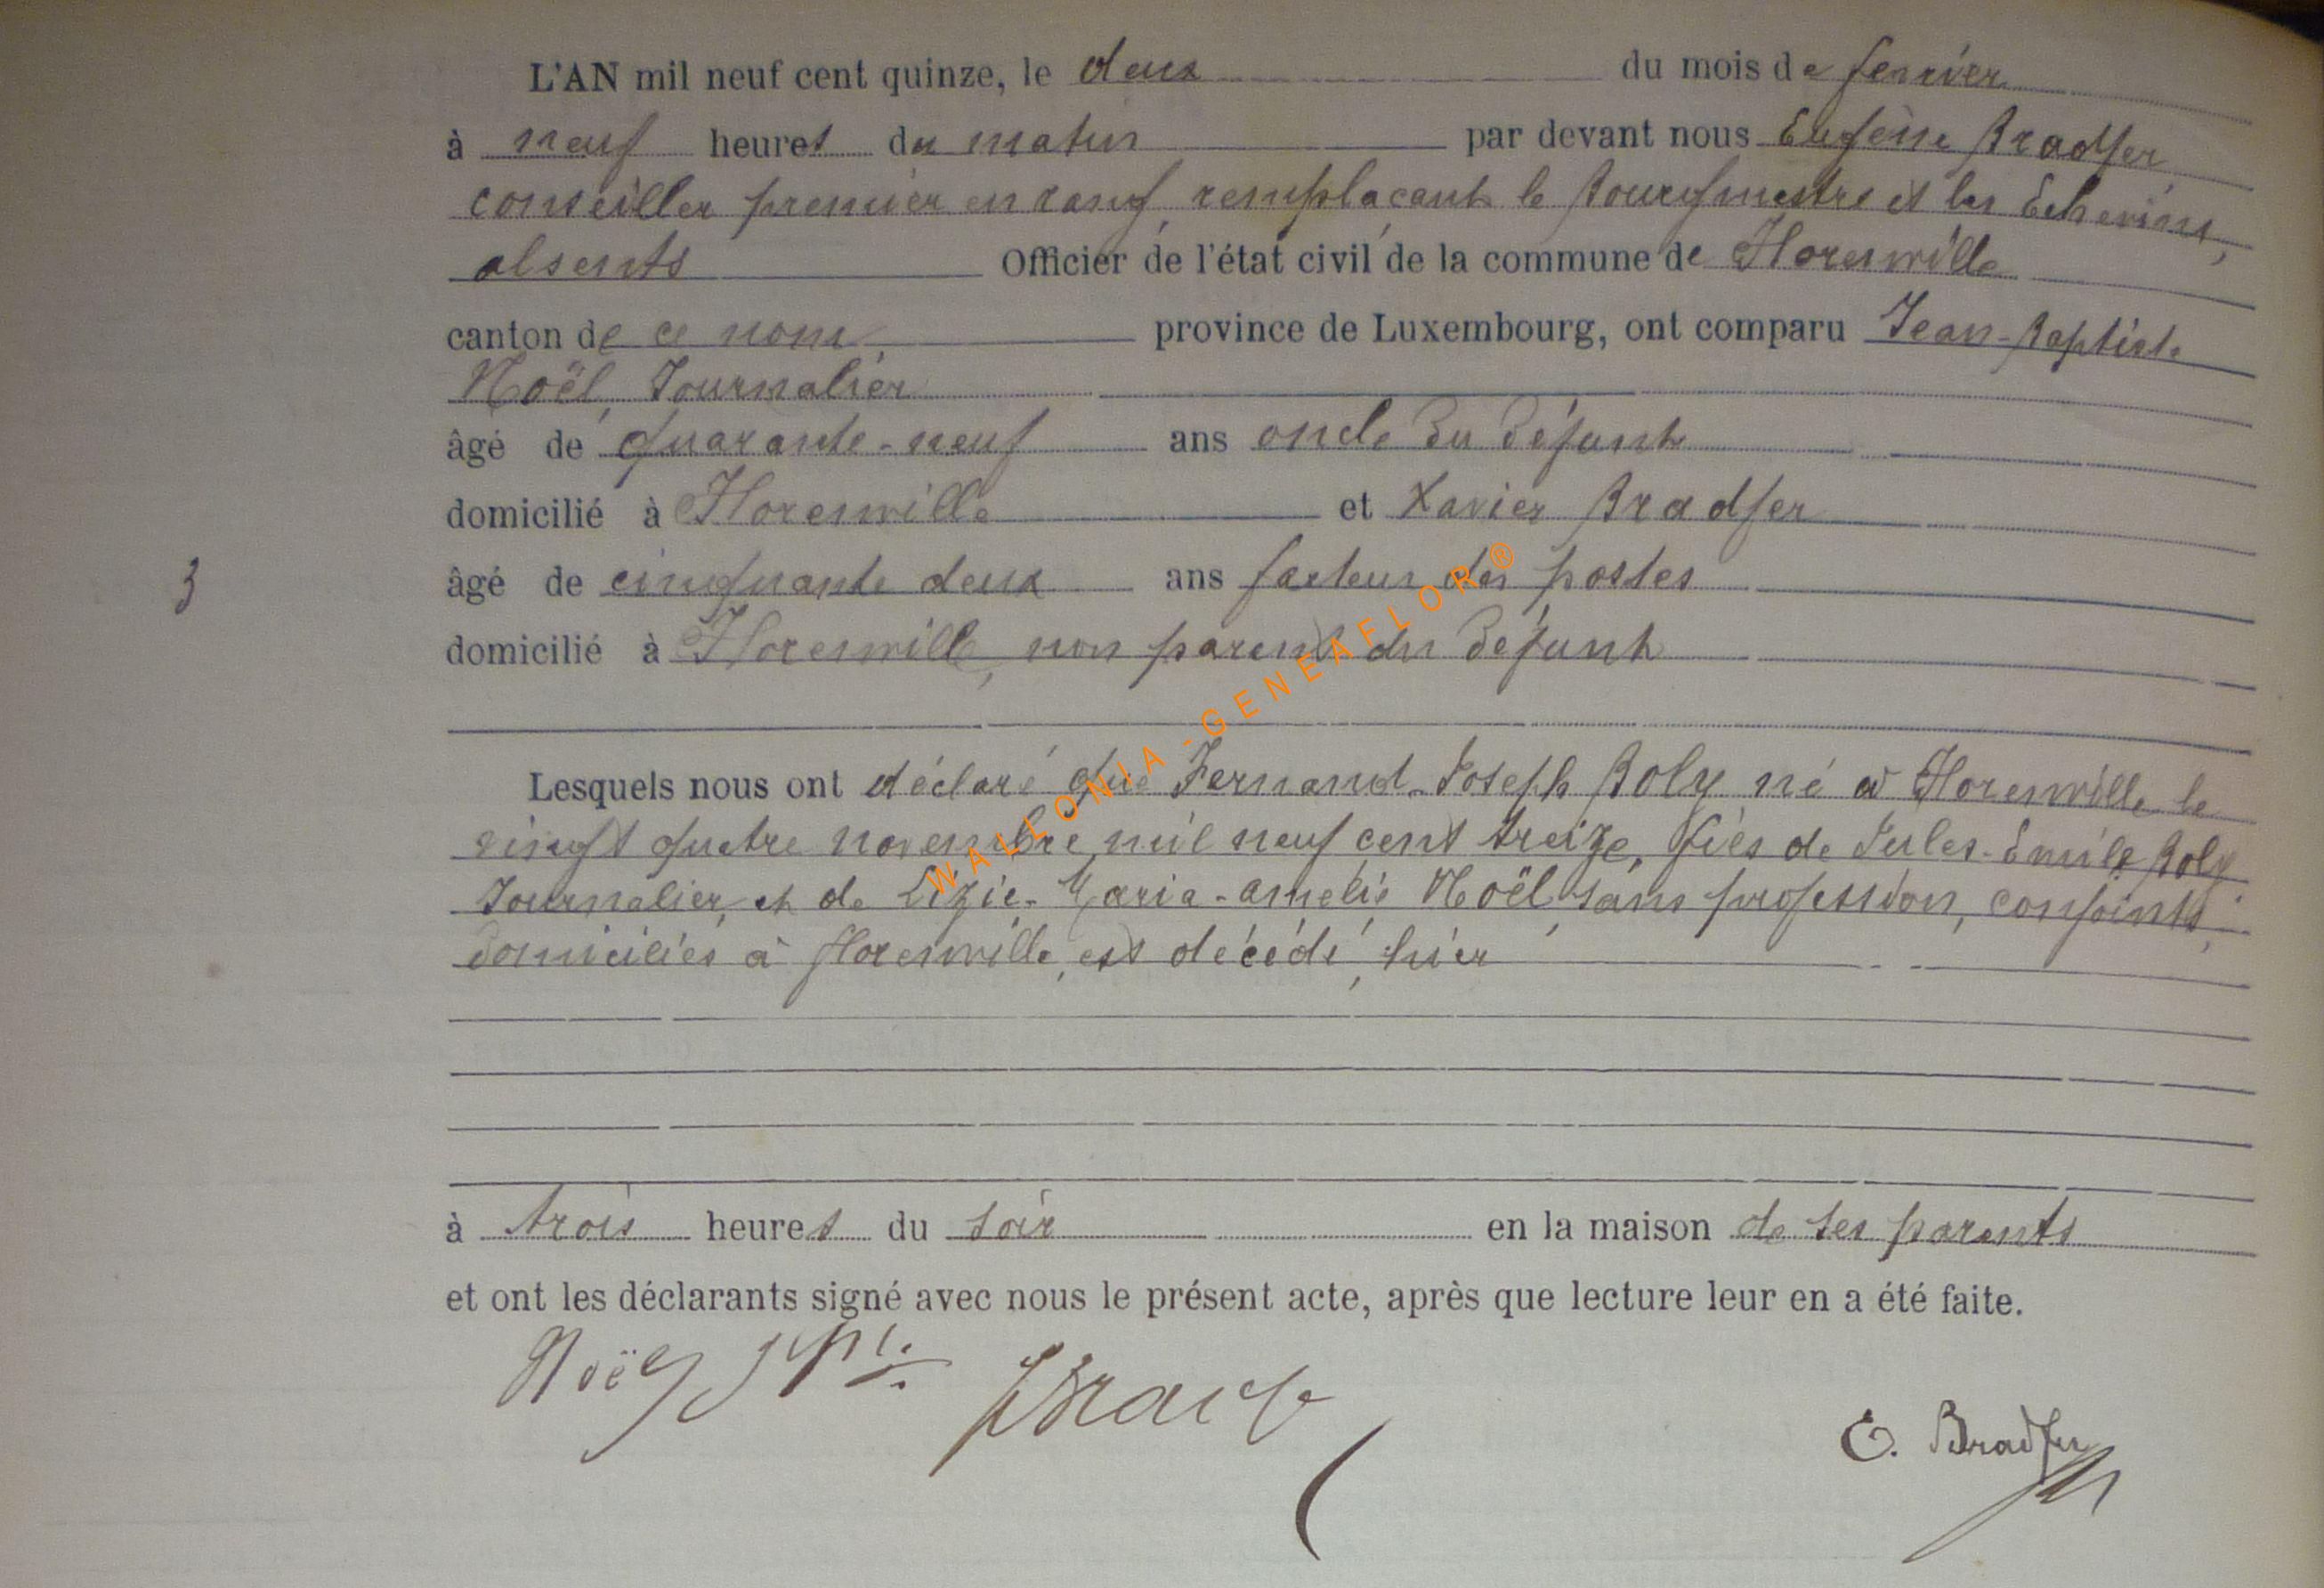 L'AN mil neuf cent quinze, le deux du mois de fevrier
à neuf heures du matin par devant nous Eugène Bradfer
conseiller premier en rang, remplaçant le Bourgmestre et les Echevins,
absents Officier de l'état civil de la commune de Florenville
canton de ce nom province de Luxembourg, ont comparu Jean-Baptiste
Noël, Journalier
âgé de quarante-neuf ans oncle du défunt
domicilié à Florenville et Xavier Bradfer
âgé de cinquante deux ans facteur des postes
3
domicilié à Florenville, non parent du défunt
Lesquels nous ont déclaré que Fernand-Joseph Boly né à Florenville le
vingt quatre novembre mil neuf cent treize, fils de Jules-Emile Boly
Journalier, et de Lizie-Maria-Amélie Noël, sans profession, conjoints,
domiciliés à Florenville, est décédé, hier
à trois heures du soir en la maison de ses parents
et ont les déclarants signé avec nous le présent acte, après que lecture leur en a été faite.
Noël E. Bradfer
WALLONIA-GENEAFLOR®